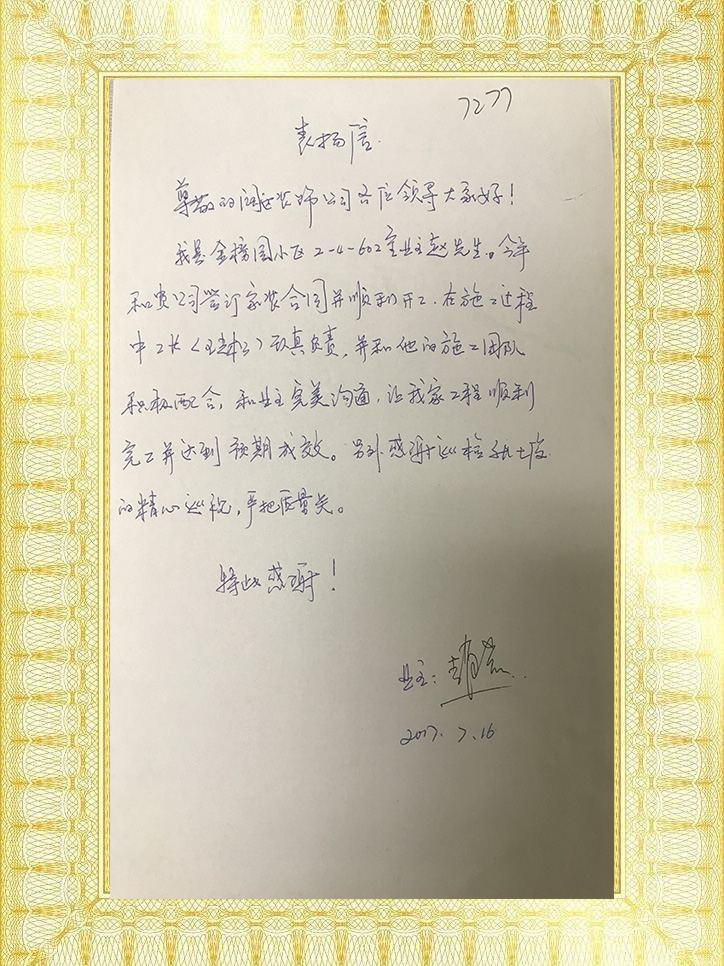 7277
表扬信
尊敬的阔达装饰公司各位领导大家好！
我是金榜园小区2-4-602室业主赵先生。今年
和贵公司签订家装合同并顺利开工.在施工过程
中工长（王）认真负责，并和他的施工团队
积极配合，和业主完美沟通，让我家工程顺利
完工并达到预期成效。另外感谢巡检
的精心巡视，严把质量关。
特此感谢！
业主：赵
2017.7.16